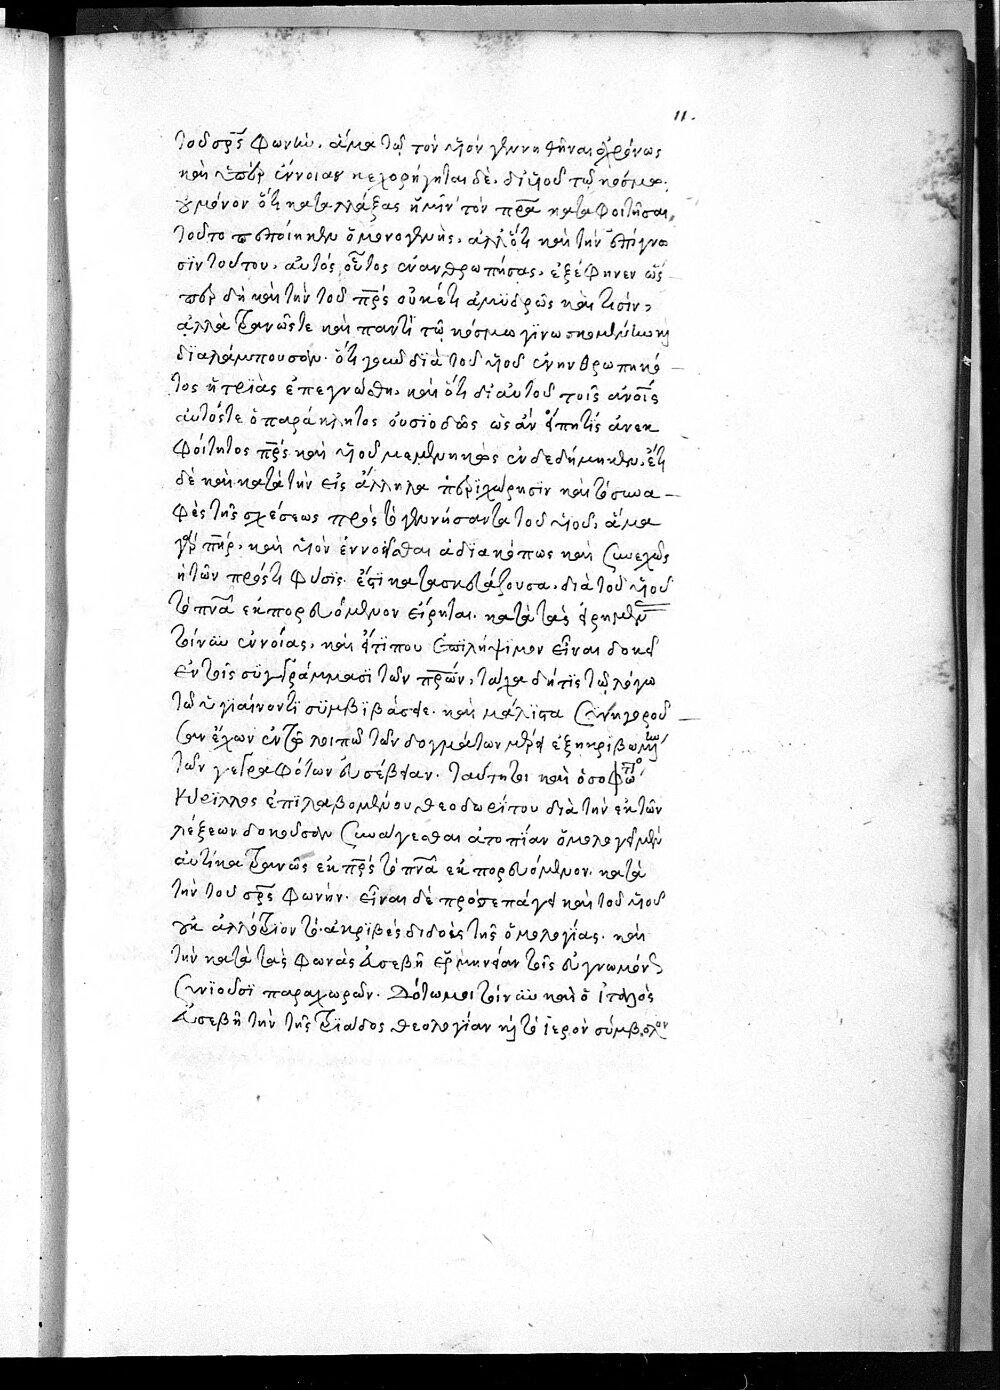 11.
τοῦ σρ̅ς φωνὴν. ἅμα τῷ τὸν υἱὸν γεννηθῆναι ἀχρόνως
καὶ ὑπὲρ ἔννοιαν κεχορήγηται δὲ. δι' υἱοῦ τῷ κόσμῳ.
οὐ μόνον ὅτι καταλλάξας ἡμῖν τὸν πρ̅α καταφοιτῆσαι
τοῦτο πεποίηκεν ὁ μονογενὴς, ἀλλ' ὅτι καὶ τὴν ἐπίγνω
σιν τούτου, αὐτὸς οὗτος ἐνανθρωπήσας, ἐξέφηνεν ὥς
περ δὴ καὶ τὴν τοῦ πρ̅ς οὐκέτι ἀμυδρῶς καὶ τισὶν,
ἀλλὰ τρανῶς τε καὶ παντὶ τῷ κόσμω γινωσκομένην καὶ
διαλάμπουσαν. ὅτι γοῦν διὰ τοῦ υἱοῦ ἐνηνθρωπηκό
τος ἡ τριὰς ἐπεγνώσθη, καὶ ὅτι δι αὐτοῦ τοῖς ἀνο̅ις
αὐτός τε ὁ παράκλητος οὐσιωδῶς ὡς ἂν εἴπῃ τις ἀνεκ
φοίτητος πρ̅ς καὶ υἱοῦ μεμενηκὼς ἐνδεδήμηκεν, ἔτι
δὲ καὶ κατὰ τὴν εἰς ἄλληλα περιχώρησιν καὶ τὸ συνα
φὲς τῆς σχέσεως πρὸς τὸ γεννήσαντα τοῦ υἱοῦ, ἅμα
γὰρ πη̅ρ, καὶ υἱὸν ἐννοεῖσθαι ἀδιακόπως καὶ συνεχῶς
ἡ τῶν πρός τι φύσις ἐστὶ κατασκευάζουσα, διὰ τοῦ υἱοῦ
τὸ πν̅α ἐκπορευόμενον εἴρηται. κατὰ τὰς εἰρημέν
τοίνυν ἐννοίας, καὶ εἴ τί που ἐπιλήψιμον εἶναι δοκεῖ
ἐν τοῖς συγγράμμασι τῶν πρ̅ων, τάχα δή τις τῷ λόγω
τῷ ὑγιαίνοντι συμβιβάσειε. καὶ μάλιστα συνήγορον
ἔχων ἐν τῷ λοιπῷ τῶν δογμάτων
τῶν γεγραφότων εὐσέβειαν. ταύτητοι καὶ ὁ σοφώ
κύριλλος ἐπιλαβομένου θεοδωρίτου διὰ τὴν ἐκ τῶν
λέξεων δοκοῦσαν συνάγεσθαι ἀτοπίαν ὁμολογεῖ μὲν
αὐτίκα τρανῶς ἐκ πρ̅ς τὸ πν̅α ἐκπορευόμενον. κατὰ
τὴν τοῦ σρ̅ς φωνὴν. εἶναι δὲ πρόσεπάγει καὶ τοῦ υἱοῦ
οὐκ ἀλλότριον τὸ ἀκριβὲς διδοὺς τῆς ὁμολογίας. καὶ
τὴν κατὰ τὰς φωνὰς εὐσεβῆ ἑρμηνείαν τοῖς εὐγνωμόν
συνιοῦσι παραχωρῶν. Δότωμοι τοίνυν καὶ ὁ ἰταλὸς
εὐσεβῆ τὴν τῆς τριάδος θεολογίαν κατὰ τὸ ἱερὸν σύμβολον